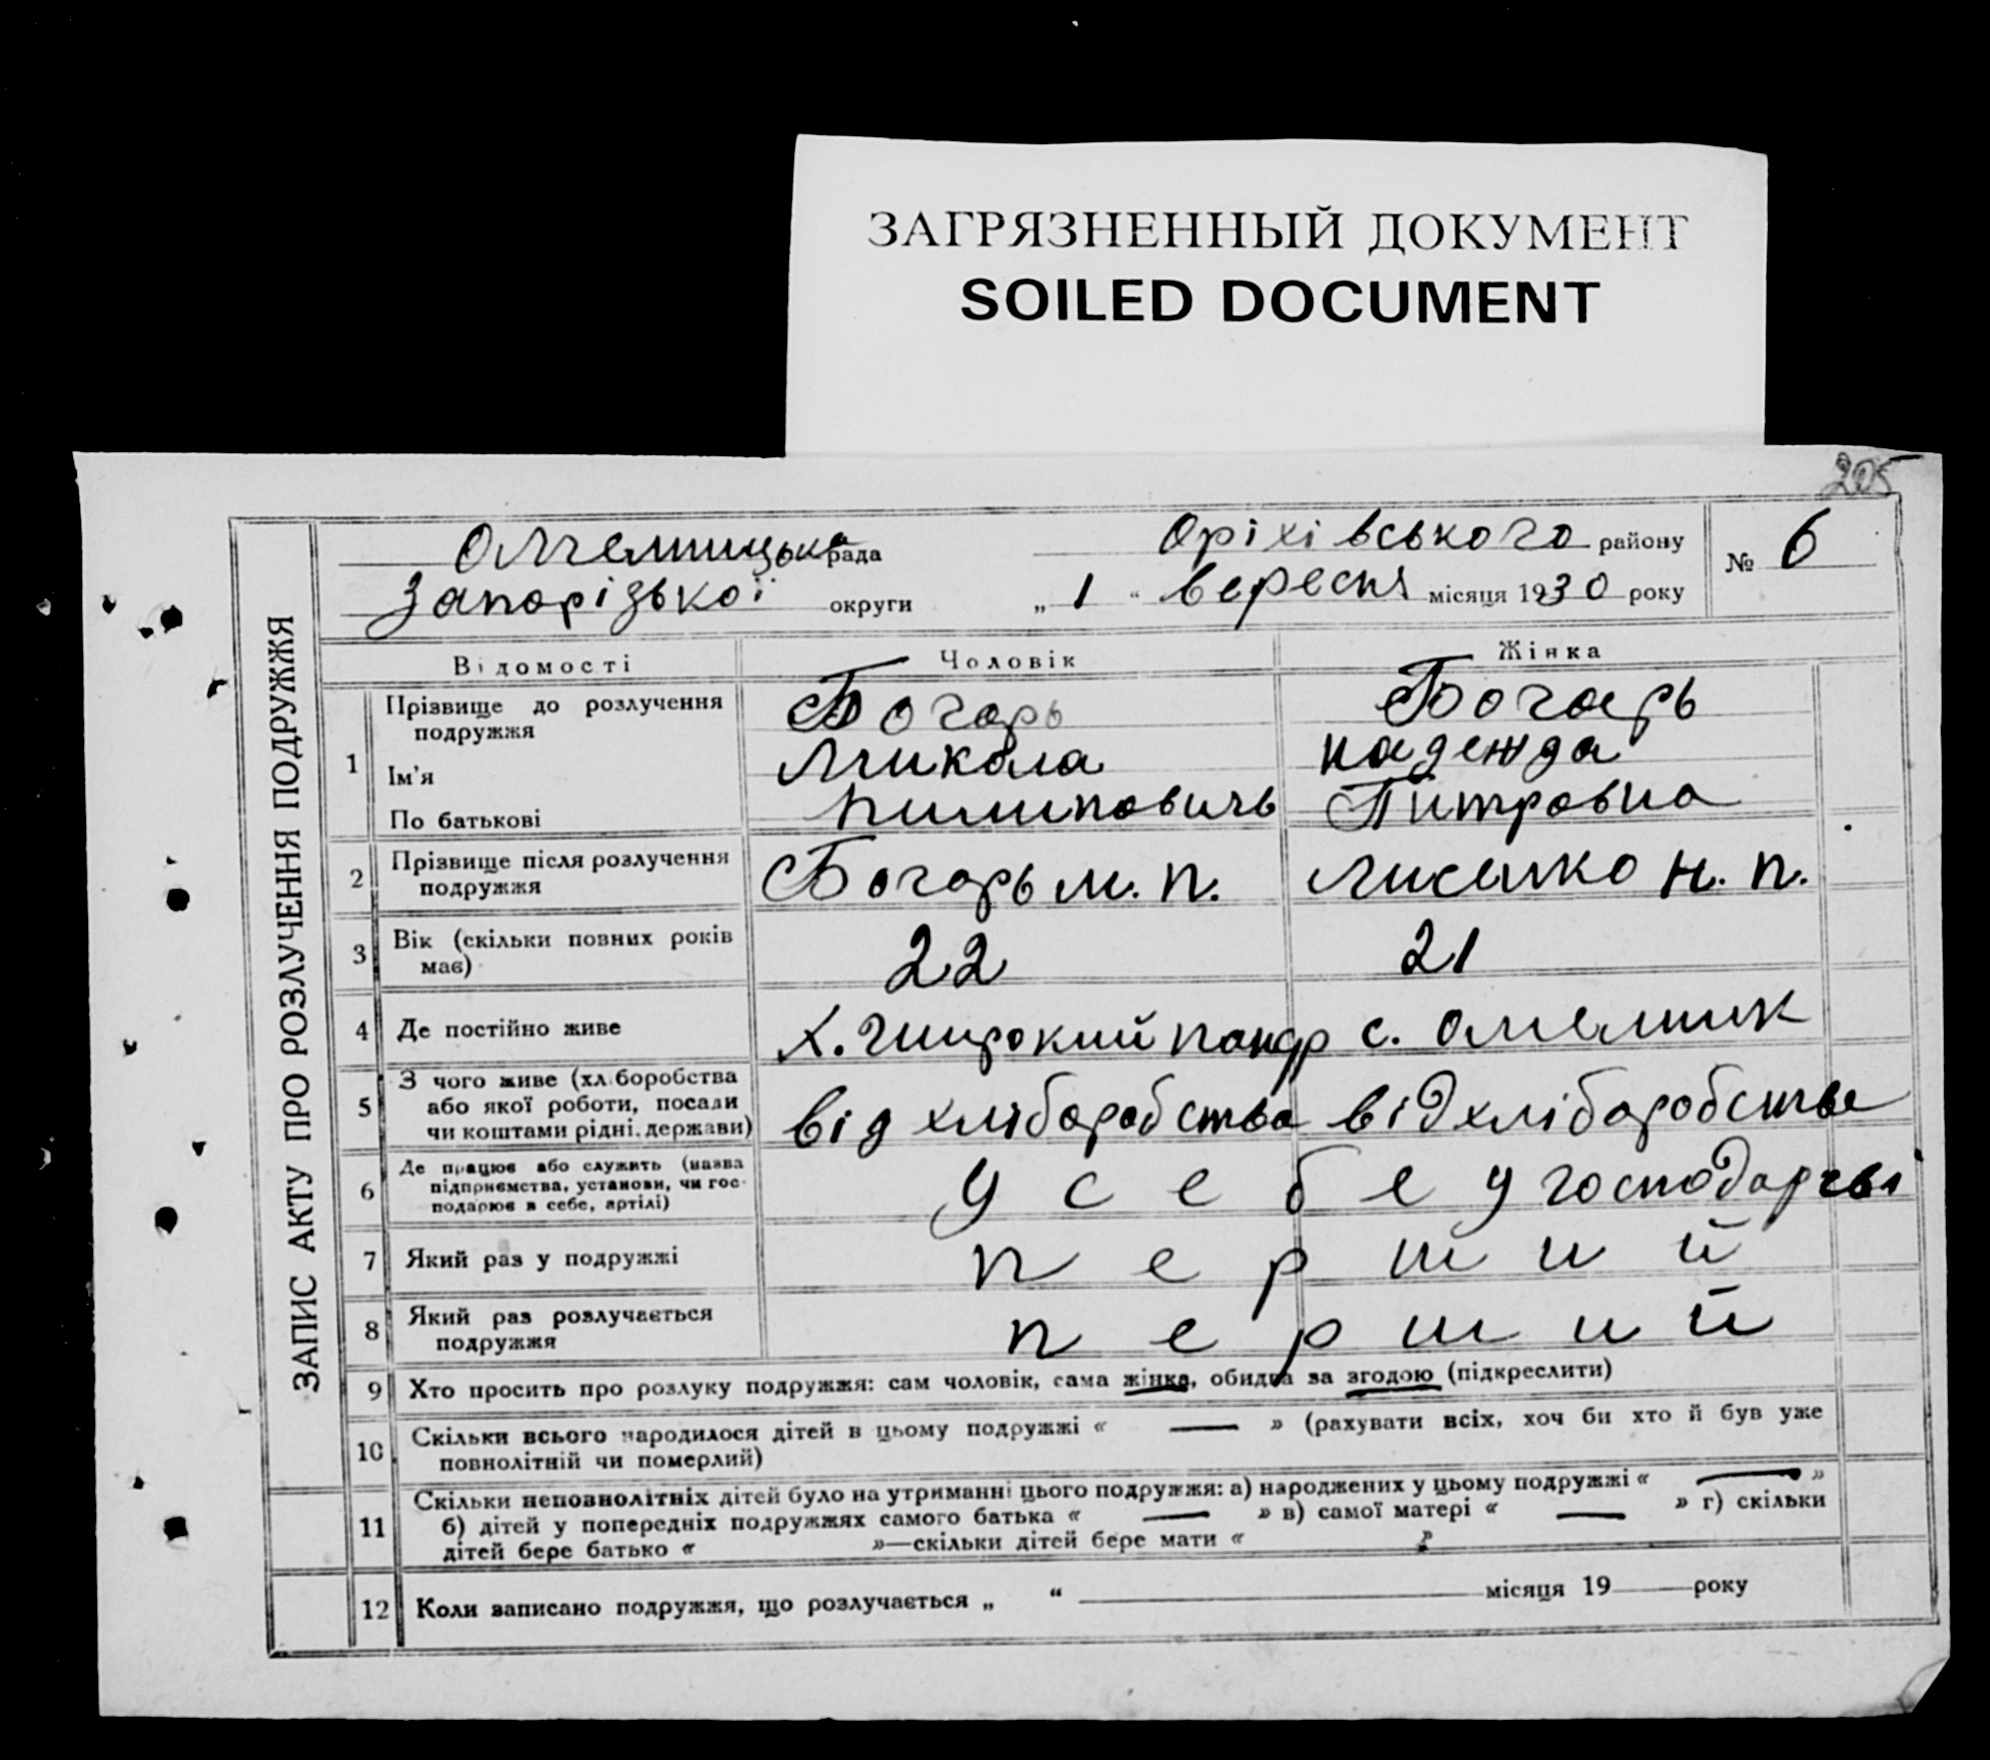 ЗАГРЯЗНЕННЫЙ ДОКУМЕНТ
SOILED DOCUMENT
205
ЗАПИС АКТУ ПРО РОЗЛУЧЕННЯ ПОДРУЖЖЯ
рада Оріхівського району № 6
Запорізької округи „ 1 " вересня місяця 1930 року
Відомості Чоловік Жінка
1 Прізвище до розлучення подружжя Богарь Богарь
Ім'я Микола Надежда
По батькові Пилиповичь Питровна
2 Прізвище після розлучення подружжя Богарь М. П. Лисенко Н. П.
3 Вік (скільки повних років має) 22 21
4 Де постійно живе Х. Широкий с. Омелник
5 З чого живе (хліборобства або якої роботи, посади чи коштами рідні, держави) від хліборобства від хліборобства
6 Де працює або служить (назва підприємства, установи, чи господарює в себе, артілі) у себе у господарсві
7 Який раз у подружжі перший
8 Який раз розлучається подружжя перший
9 Хто просить про розлуку подружжя: сам чоловік, сама жінка, обидва за згодою (підкреслити)
10 Скільки всього народилося дітей в цьому подружжі « — » (рахувати всіх, хоч би хто й був уже
повнолітній чи померлий)
11 Скільки неповнолітніх дітей було на утриманні цього подружжя: а) народжених у цьому подружжі « — »
б) дітей у попередніх подружжях самого батька « — » в) самої матері « — » г) скільки
дітей бере батько « »—скільки дітей бере мати « »
12 Коли записано подружжя, що розлучається „ “ місяця 19 року